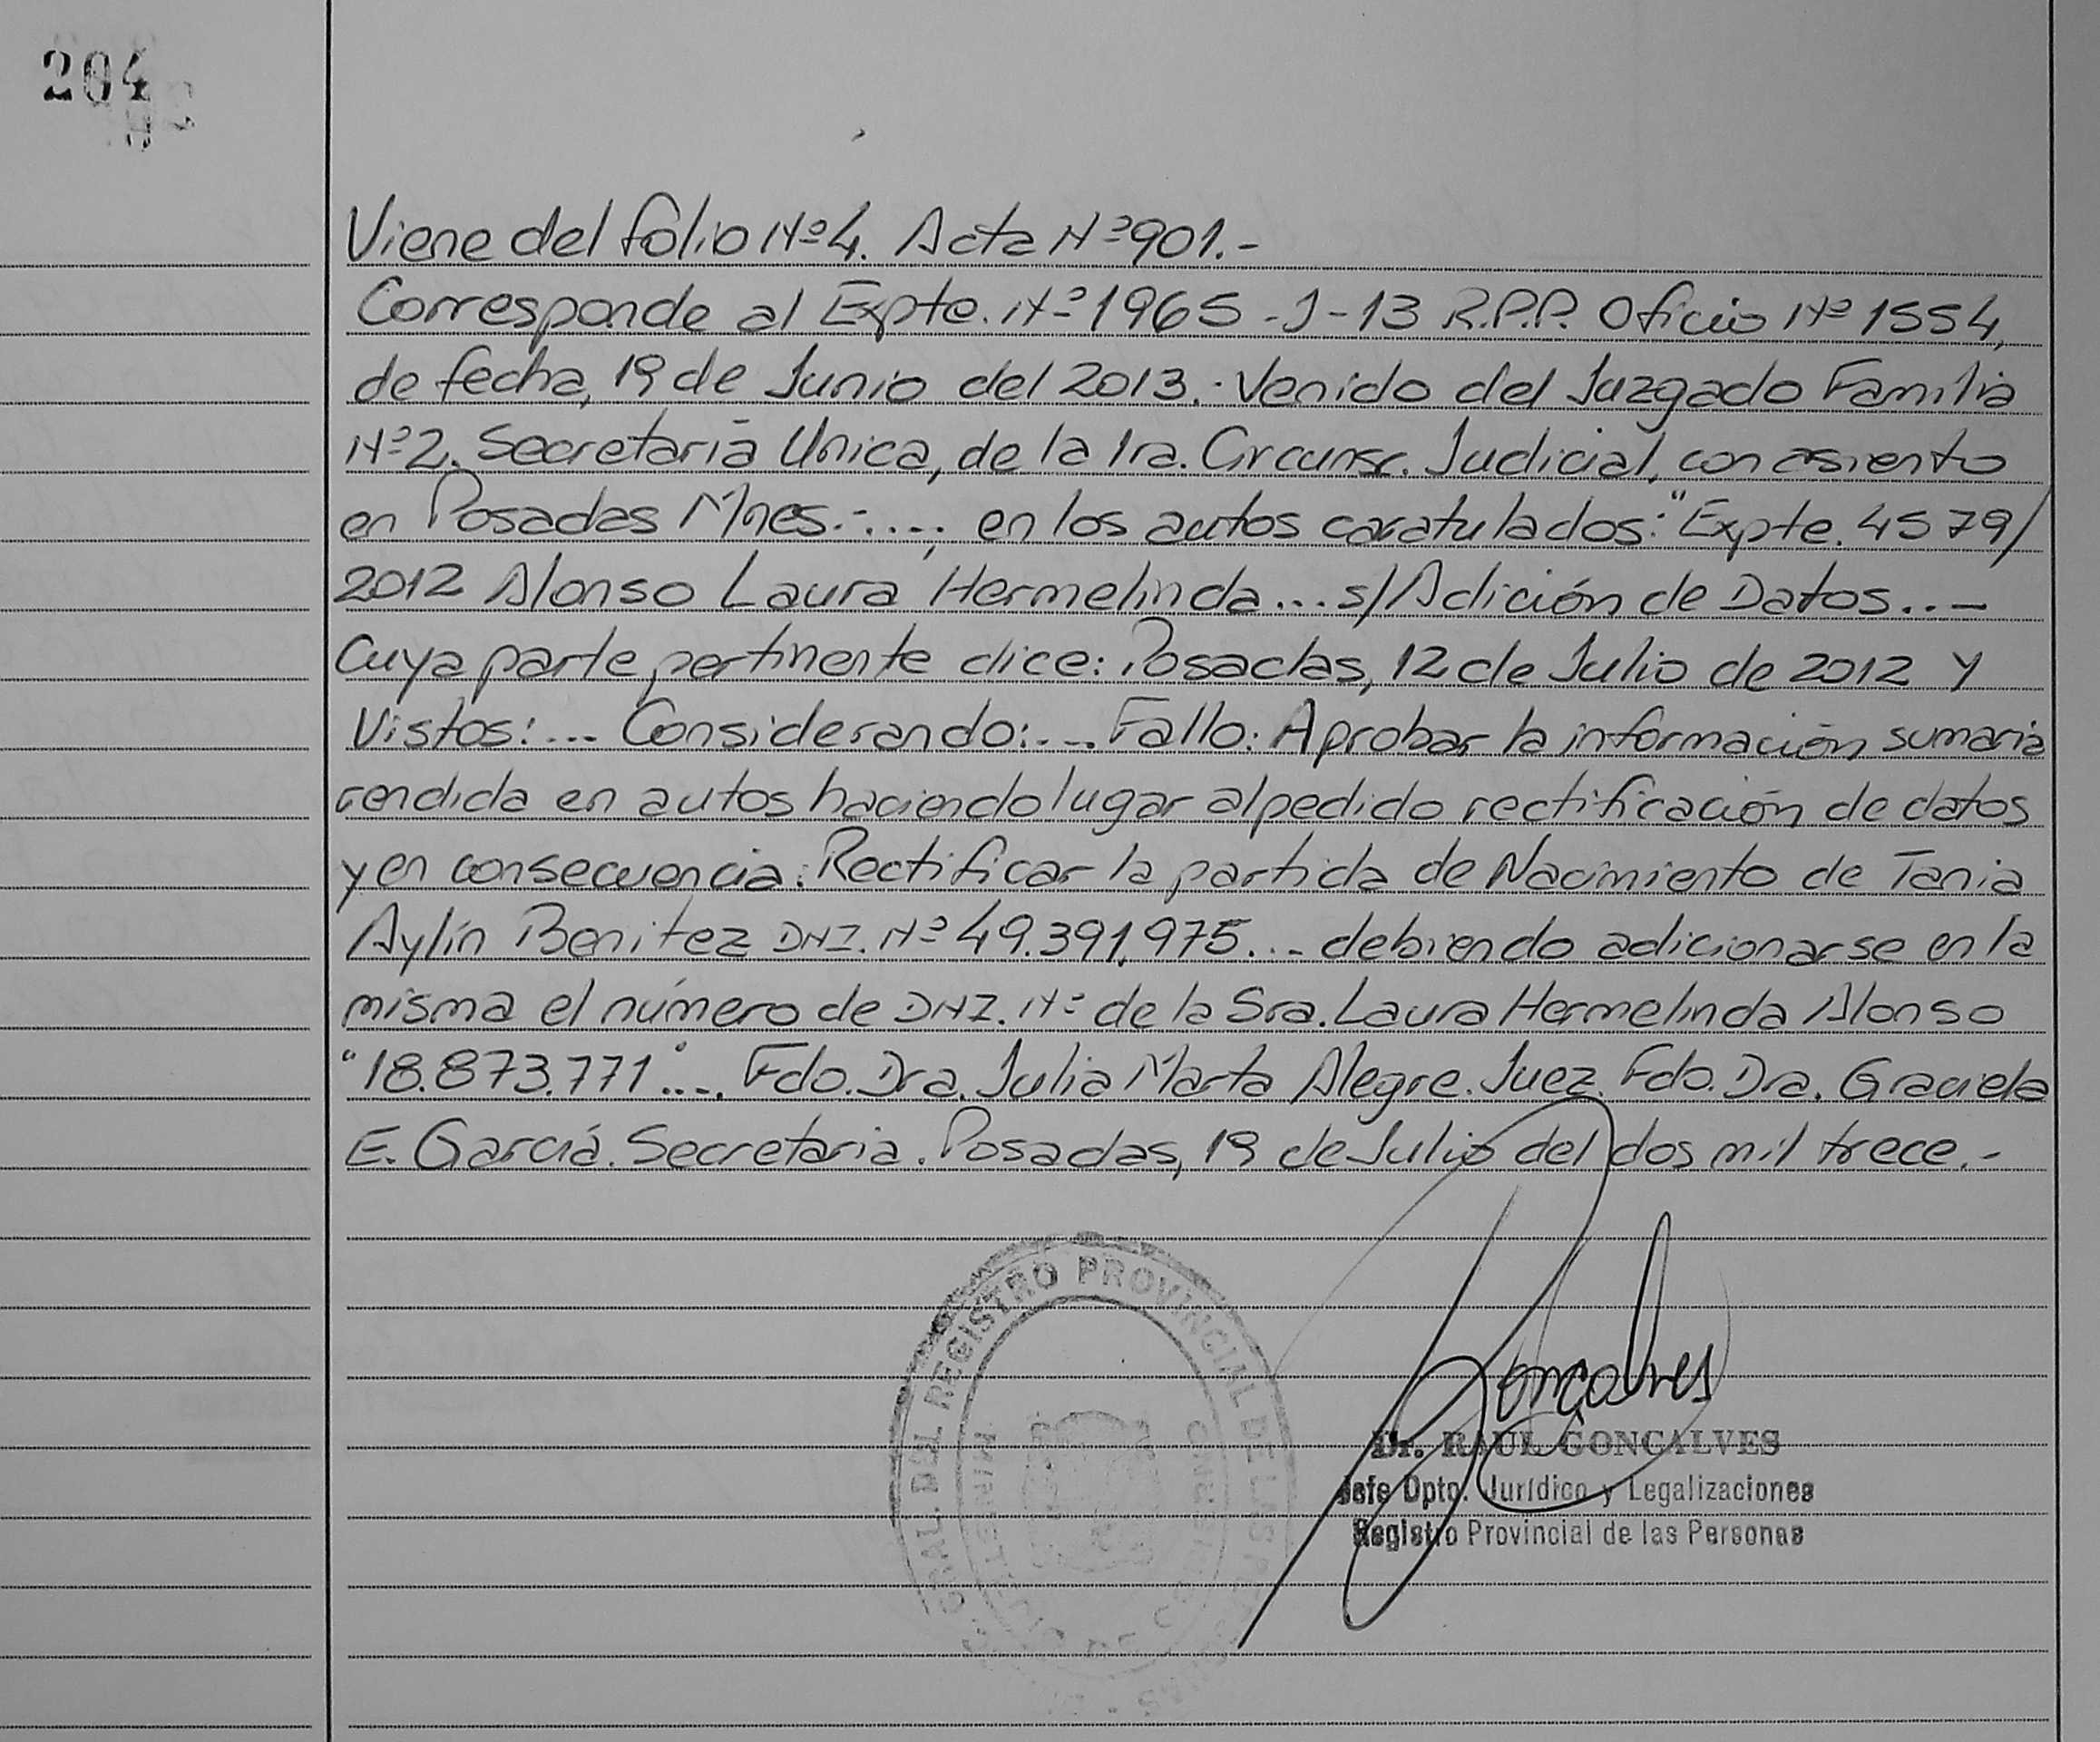 204
Viene del folio Nº4. Acta Nº901.-
Corresponde al Expte. Nº1965-J-13 R.P.P. Oficio Nº 1554,
de fecha, 19 de Junio del 2013.- Venido del Juzgado Familia
Nº2. Secretaria Unica, de la 1ra. Circunsc. Judicial, con asiento
en Posadas Mnes.-...; en los autos caratulados: "Expte. 4579/
2012 Alonso Laura Hermelinda...s/Adición de Datos..-
Cuya parte pertinente dice: Posadas, 12 de Julio de 2012 Y
Vistos:... Considerando:... Fallo: Aprobar la información sumaria
rendida en autos haciendo lugar al pedido rectificación de datos
y en consecuencia: Rectificar la partida de Nacimiento de Tania
Aylín Benitez DNI. Nº 49.391.975... debiendo adicionarse en la
misma el número de DNI. Nº de la Sra. Laura Hermelinda Alonso
"18.873.771".... Fdo. Dra. Julia Marta Alegre. Juez. Fdo. Dra. Graciela
E. Garciá. Secretaria. Posadas, 19 de Julio del dos mil trece.-
GRAL. DEL REGISTRO PROVINCIAL DE LAS
Goncalves
Dr. RAUL GONCALVES
Jefe Dpto. Jurídico y Legalizaciones
Registro Provincial de las Personas